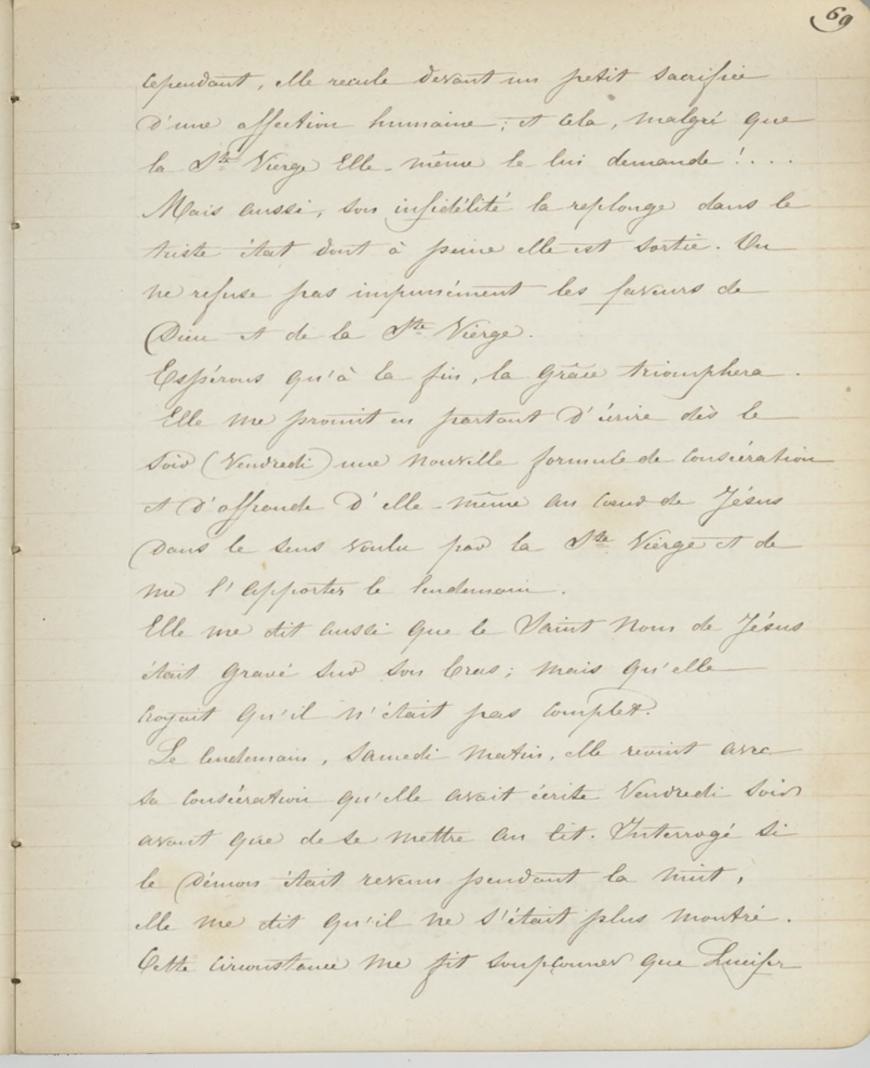 69
cependant, elle recule devant un petit sacrifice
d'une affection humaine ; et cela, malgré que
la Ste Vierge Elle-même le lui demande !...
Mais aussi, son infidélité la replonge dans le
triste état dont à peine elle est sortie. On
ne refuse pas impunément les faveurs de
Dieu et de la Ste Vierge.
Espérons qu'à la fin, la grâce triomphera.
Elle me promit en partant d'écrire dès le
soir (Vendredi) une nouvelle formule de consécration
et d'offrande d'elle-même au cœur de Jésus
dans le sens voulu par la Ste Vierge et de
me l'apporter le lendemain.
Elle me dit aussi que le Saint Nom de Jésus
était gravé sur son bras ; mais qu'elle
croyait qu'il n'était pas complet.
Le lendemain, samedi matin, elle revint avec
sa consécration qu'elle avait écrite Vendredi soir
avant que de se mettre au lit. Interrogé si
le Démon était revenu pendant la nuit,
elle me dit qu'il ne s'était plus montré.
Cette circonstance me fit soupçonner que Lucifer